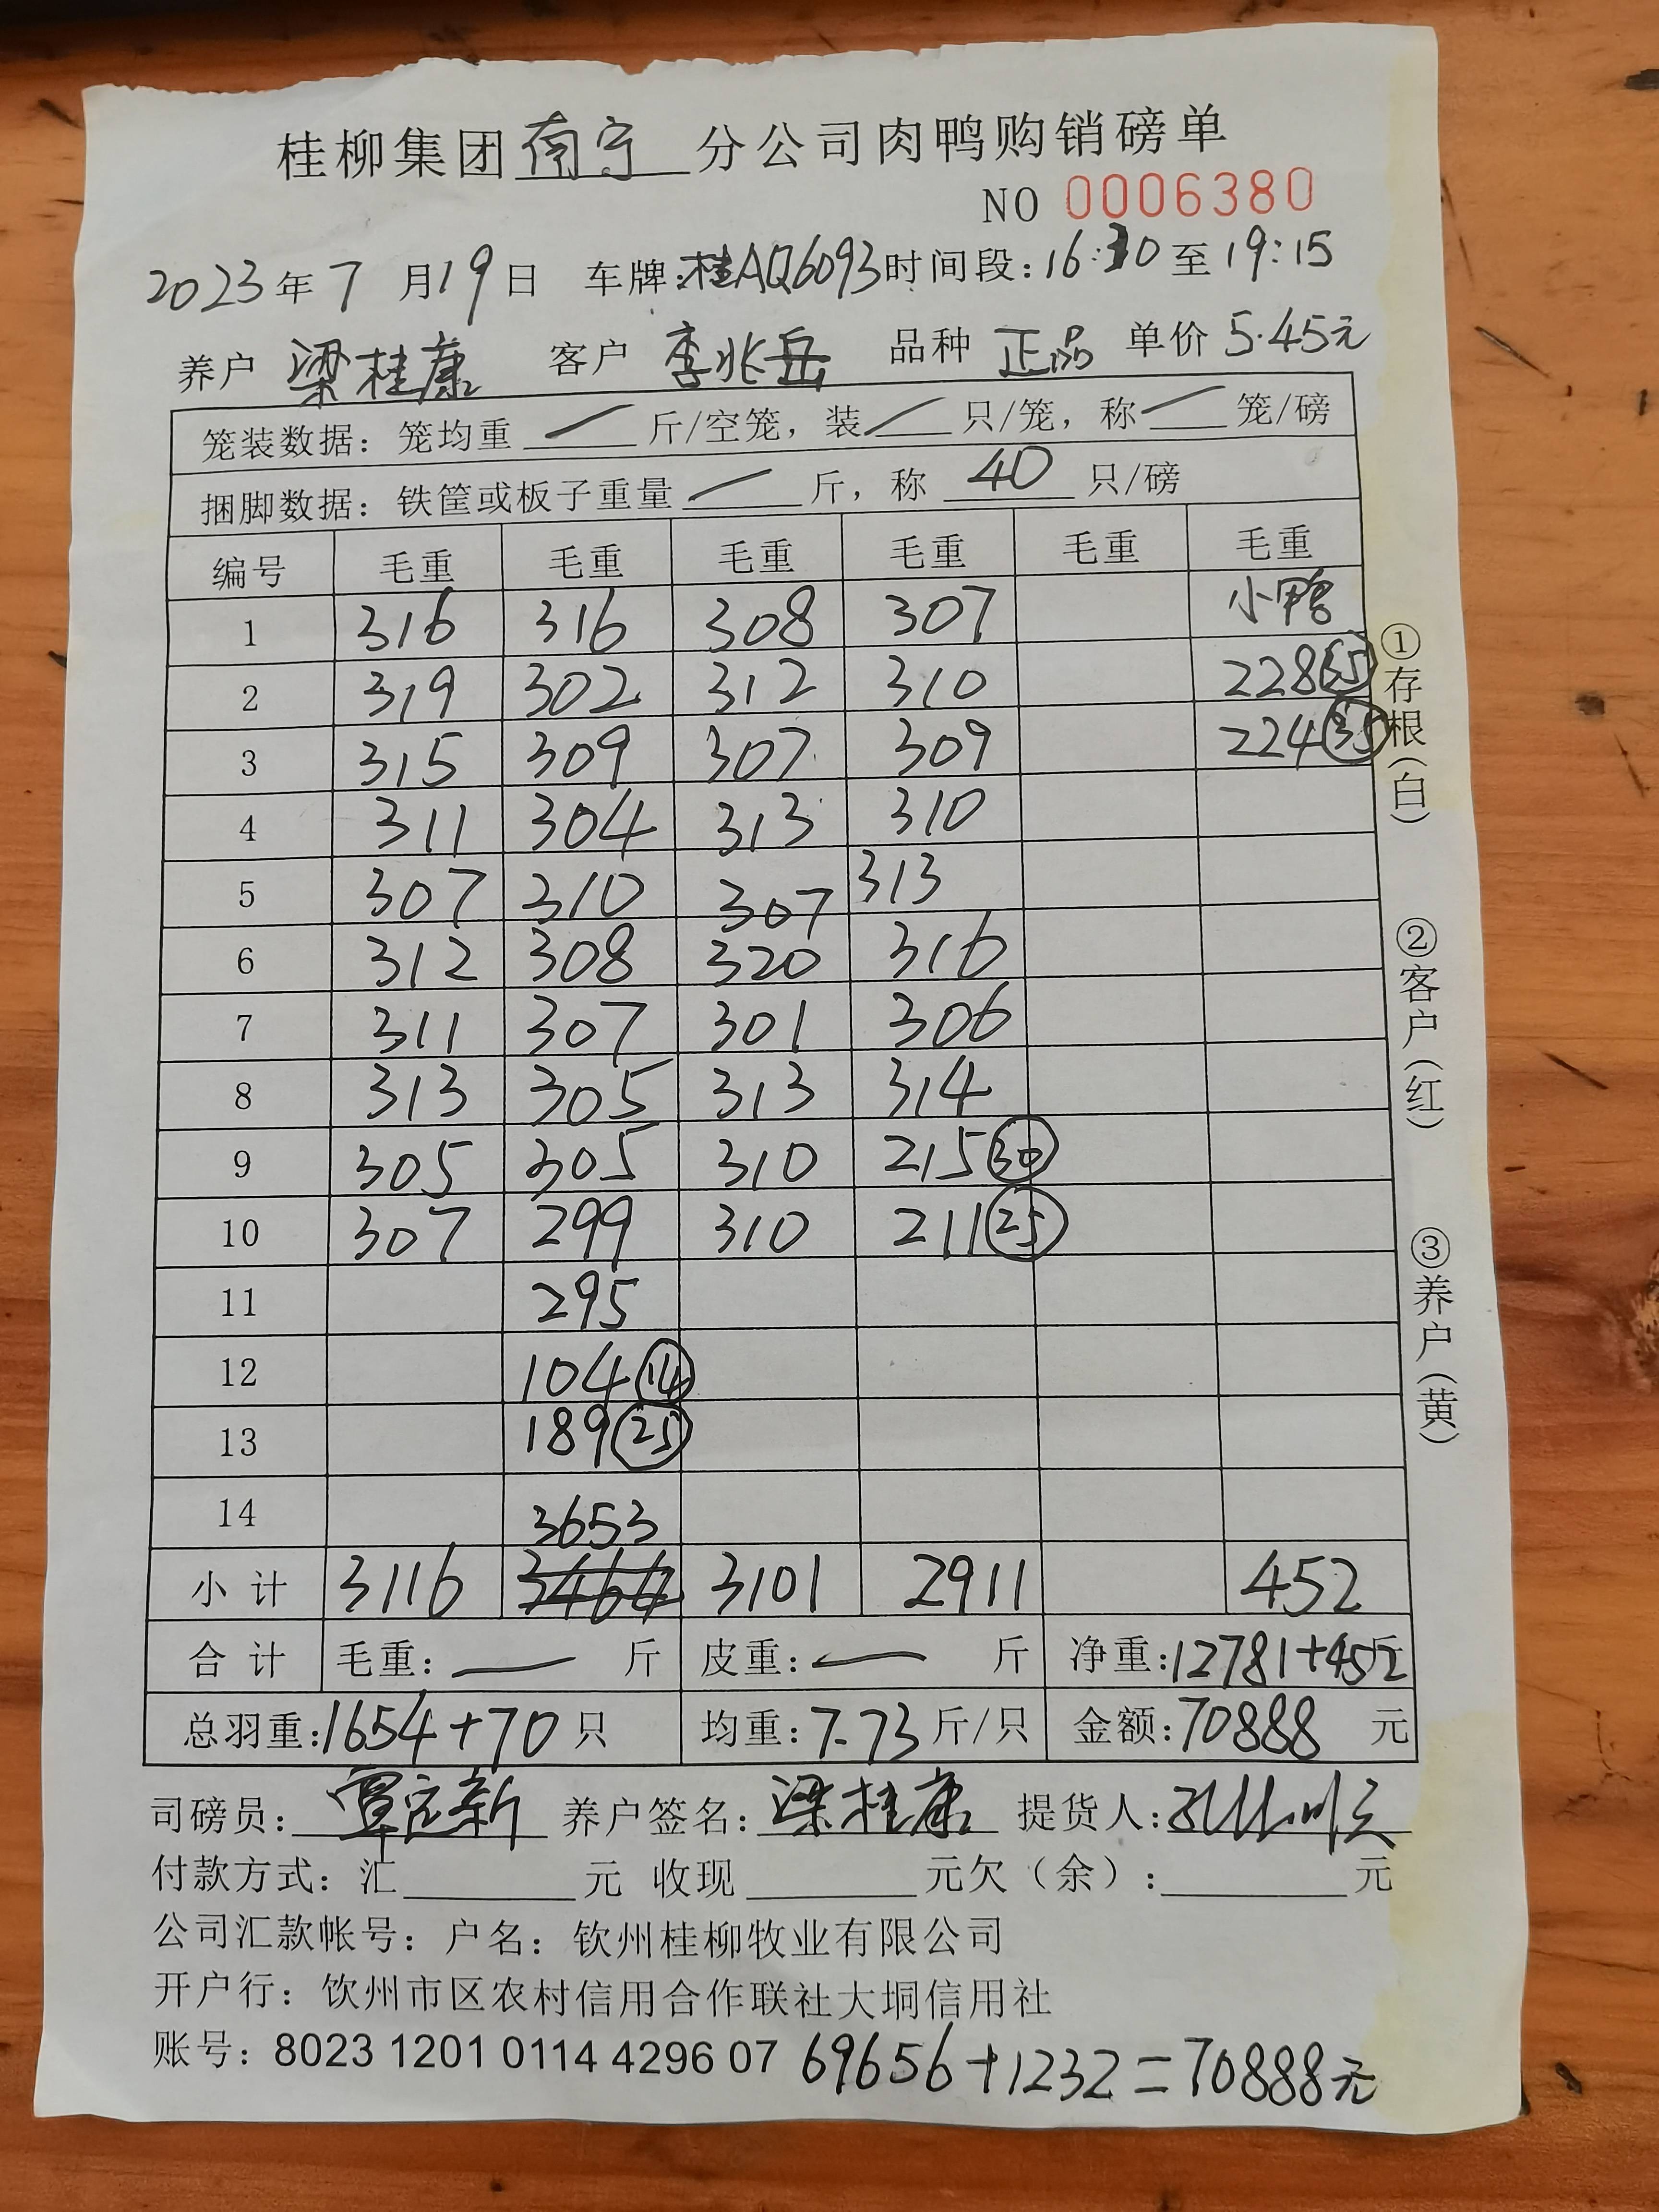 桂柳集团南宁分公司肉鸭购销磅单
NO 0006380
2023年7月19日 车牌:桂AQ6093时间段:16:30至19:15
养户 梁桂康 客户 李兆岳 品种 正品 单价 5.45元
笼装数据: 笼均重 — 斤/空笼, 装 — 只/笼, 称 — 笼/磅
捆脚数据: 铁筐或板子重量 — 斤, 称 40 只/磅
编号 毛重 毛重 毛重 毛重 毛重 毛重
1 316 316 308 307 小鸭
2 319 302 312 310 228(35)
3 315 309 307 309 224(35)
4 311 304 313 310
5 307 310 307 313
6 312 308 320 316
7 311 307 301 306
8 313 305 313 314
9 305 305 310 215(30)
10 307 299 310 211(25)
11 295
12 104(14)
13 189(25)
14 3653
小计 3116 3464 3101 2911 452
合计 毛重: — 斤 皮重: — 斤 净重:12781+452斤
总羽重:1654+70只 均重:7.73斤/只 金额:70888 元
司磅员: 覃定新 养户签名: 梁桂康 提货人:
付款方式: 汇 元 收现 元欠(余): 元
公司汇款帐号: 户名: 钦州桂柳牧业有限公司
开户行: 饮州市区农村信用合作联社大垌信用社
账号: 8023 1201 0114 4296 07 69656+1232=70888元
①存根(白)
②客户(红)
③养户(黄)